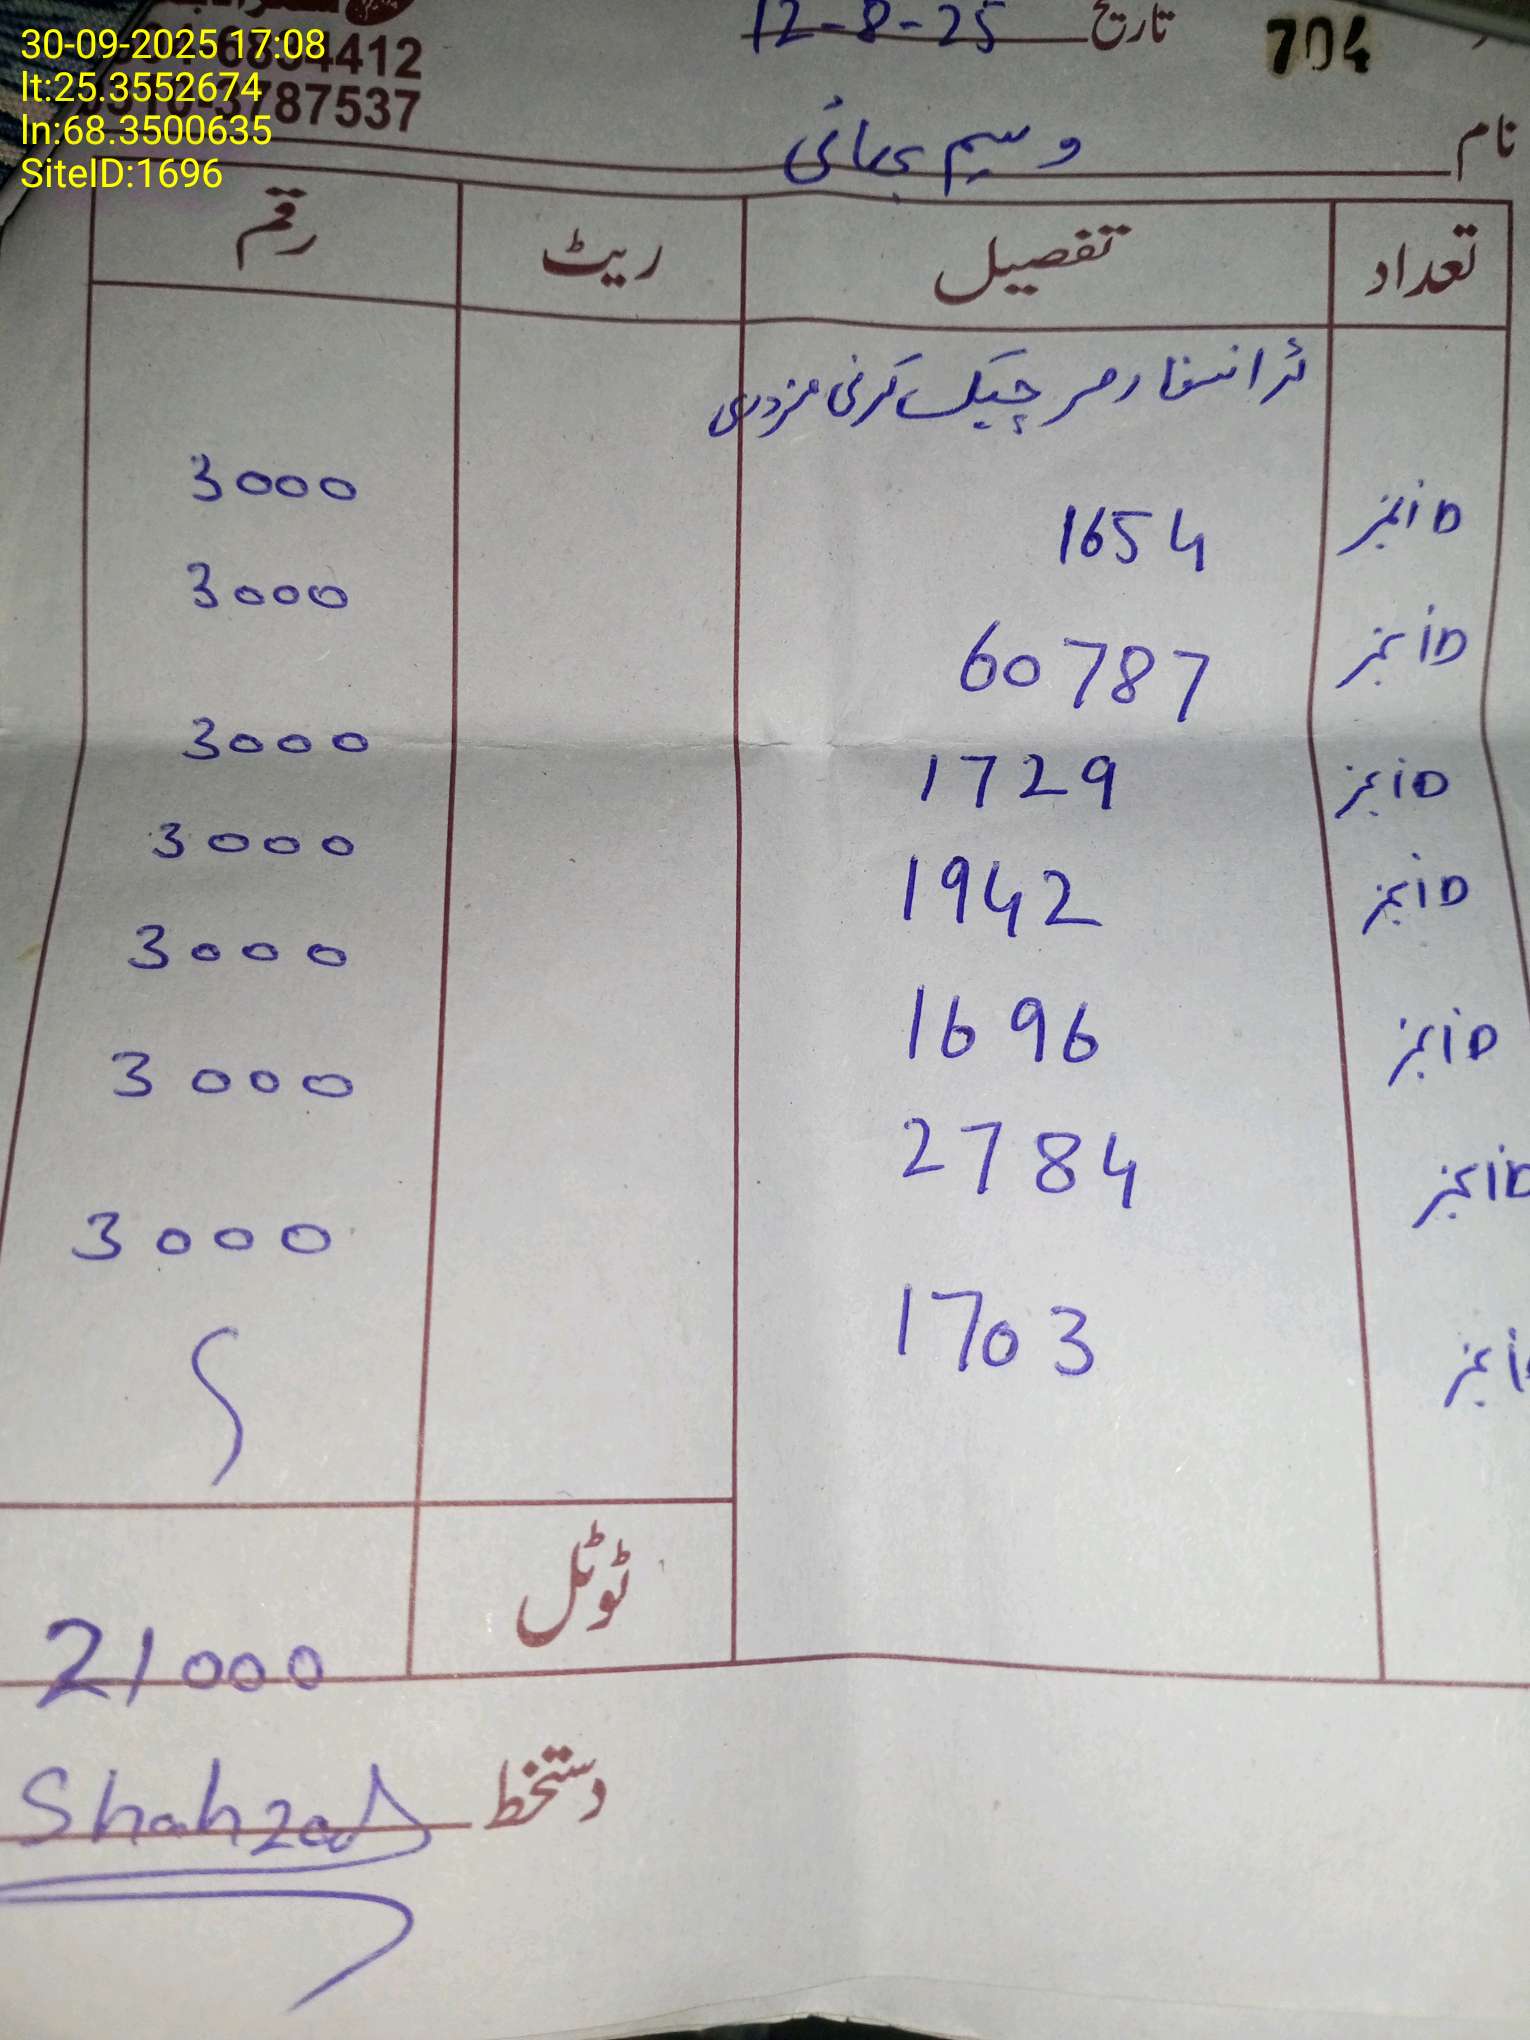 30-09-2025 17:08
lt:25.3552674
ln:68.3500635
SiteID:1696
704
تاریخ 12-8-25
4412
3787537
نام وسیم بھائی
تعداد تفصیل ریٹ رقم
ٹرانسفارمر چیک کرنی مزدوری
iD نمبر 1654 3000
iD نمبر 60787 3000
iD نمبر 1729 3000
iD نمبر 1942 3000
iD نمبر 1696 3000
iD نمبر 2784 3000
iD نمبر 1703 3000
ٹوٹل 21000
دستخط Shahzad